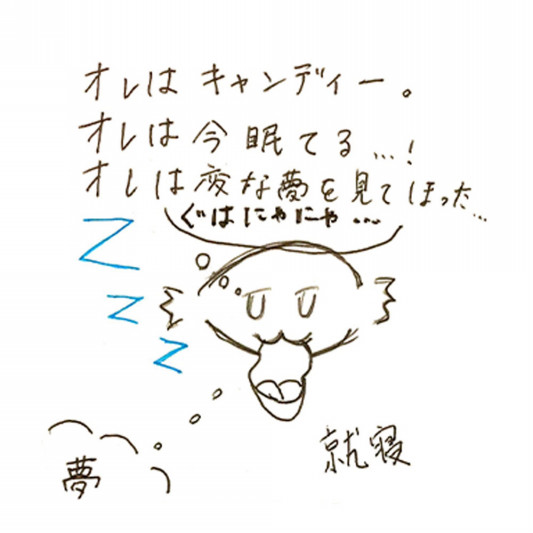 オレは キャンディー。
オレは今眠てる...!
オレは変な夢を見てほった...
ぐはにゃにゃ...
Z
Z
Z
夢
就寝